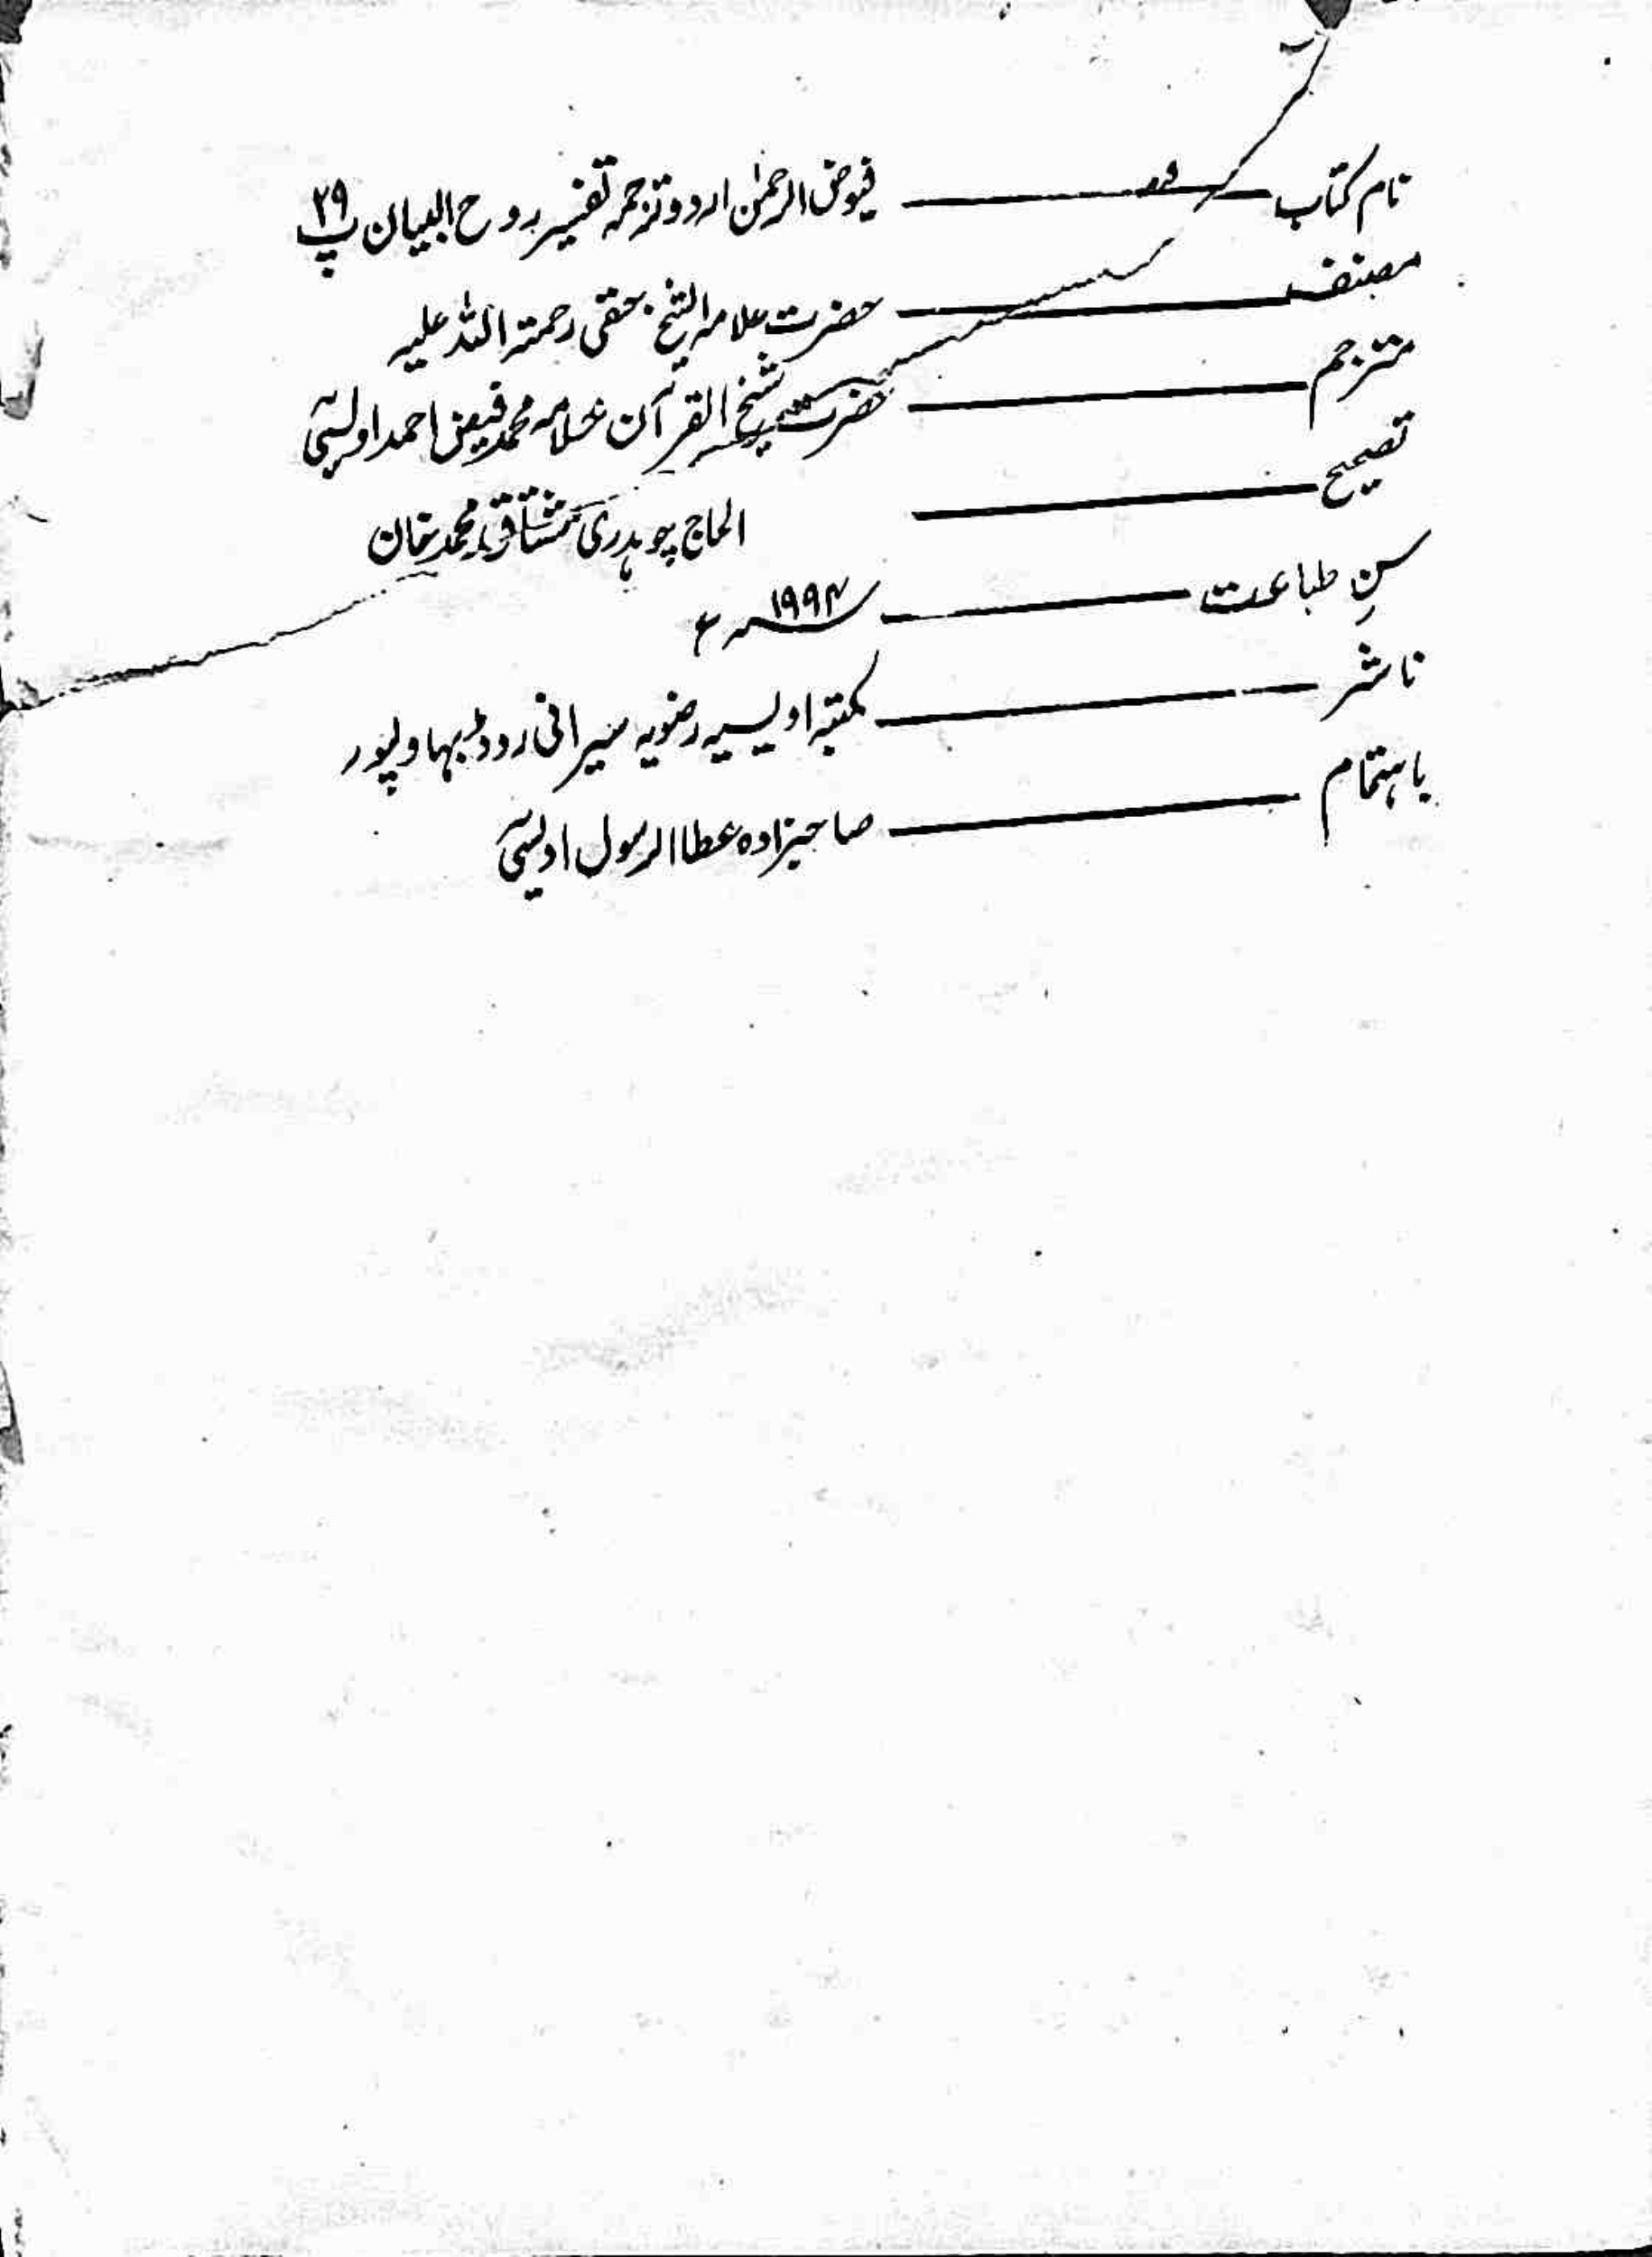 نام کتاب ——— فیوض الرحمٰن اردو ترجمہ تفسیر روح البیان پ ۲۹
مصنف ——— حضرت علامہ الشیخ حقی رحمتہ اللہ علیہ
مترجم ——— حضرت شیخ القرآن علامہ محمد فیض احمد اویسی
تصحیح ——— الحاج چوہدری مشتاق محمد خان
سنِ طباعت ——— ۱۹۹۴ء
ناشر ——— مکتبہ اویسیہ رضویہ سیرانی روڈ بہاولپور
باہتمام ——— صاحبزادہ عطا الرسول اویسی